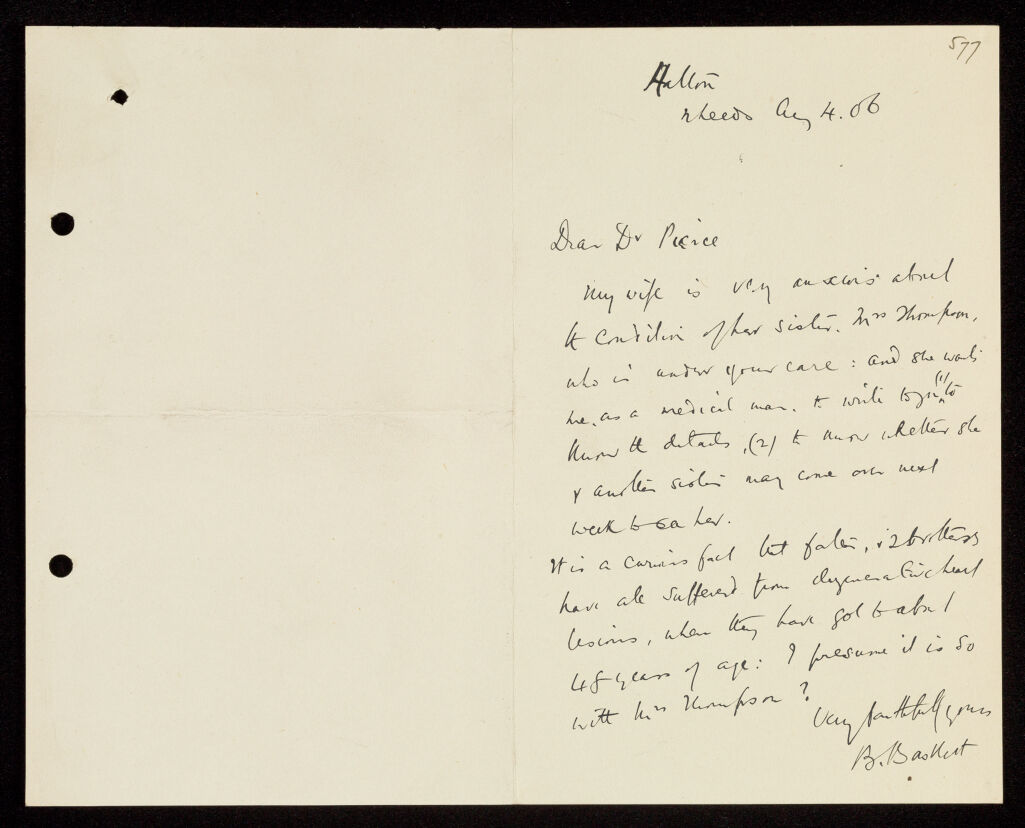 577
Halton
Leeds Aug 4. 06
Dear Dr Pierce
My wife is very anxious about
the condition of her sister. Mrs Thompson,
who is under your care: and she wants
me, as a medical man, to write to you (1) to
know the details, (2) to know whether she
& another sister may come over next
week to see her.
It is a curious fact that father, & 2 brothers
have all suffered from degenerative heart
lesions, when they have got to about
48 years of age: I presume it is so
with Mrs Thompson?
Very faithfully yours
B. Baskett